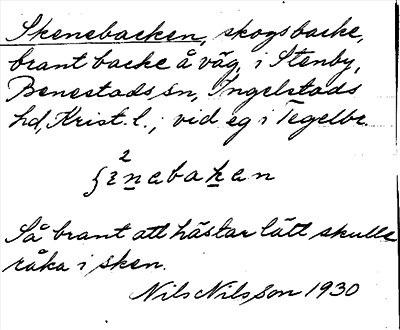 Skenebacken, skogsbacke,
brant backe å väg i Stenby,
Benestads sn, Ingelstads
hd, Krist. l., vid eg i Tegelbr.
2
nebaken
Så brant att hästar lätt skulle
råka i sken.
Nils Nilsson 1930